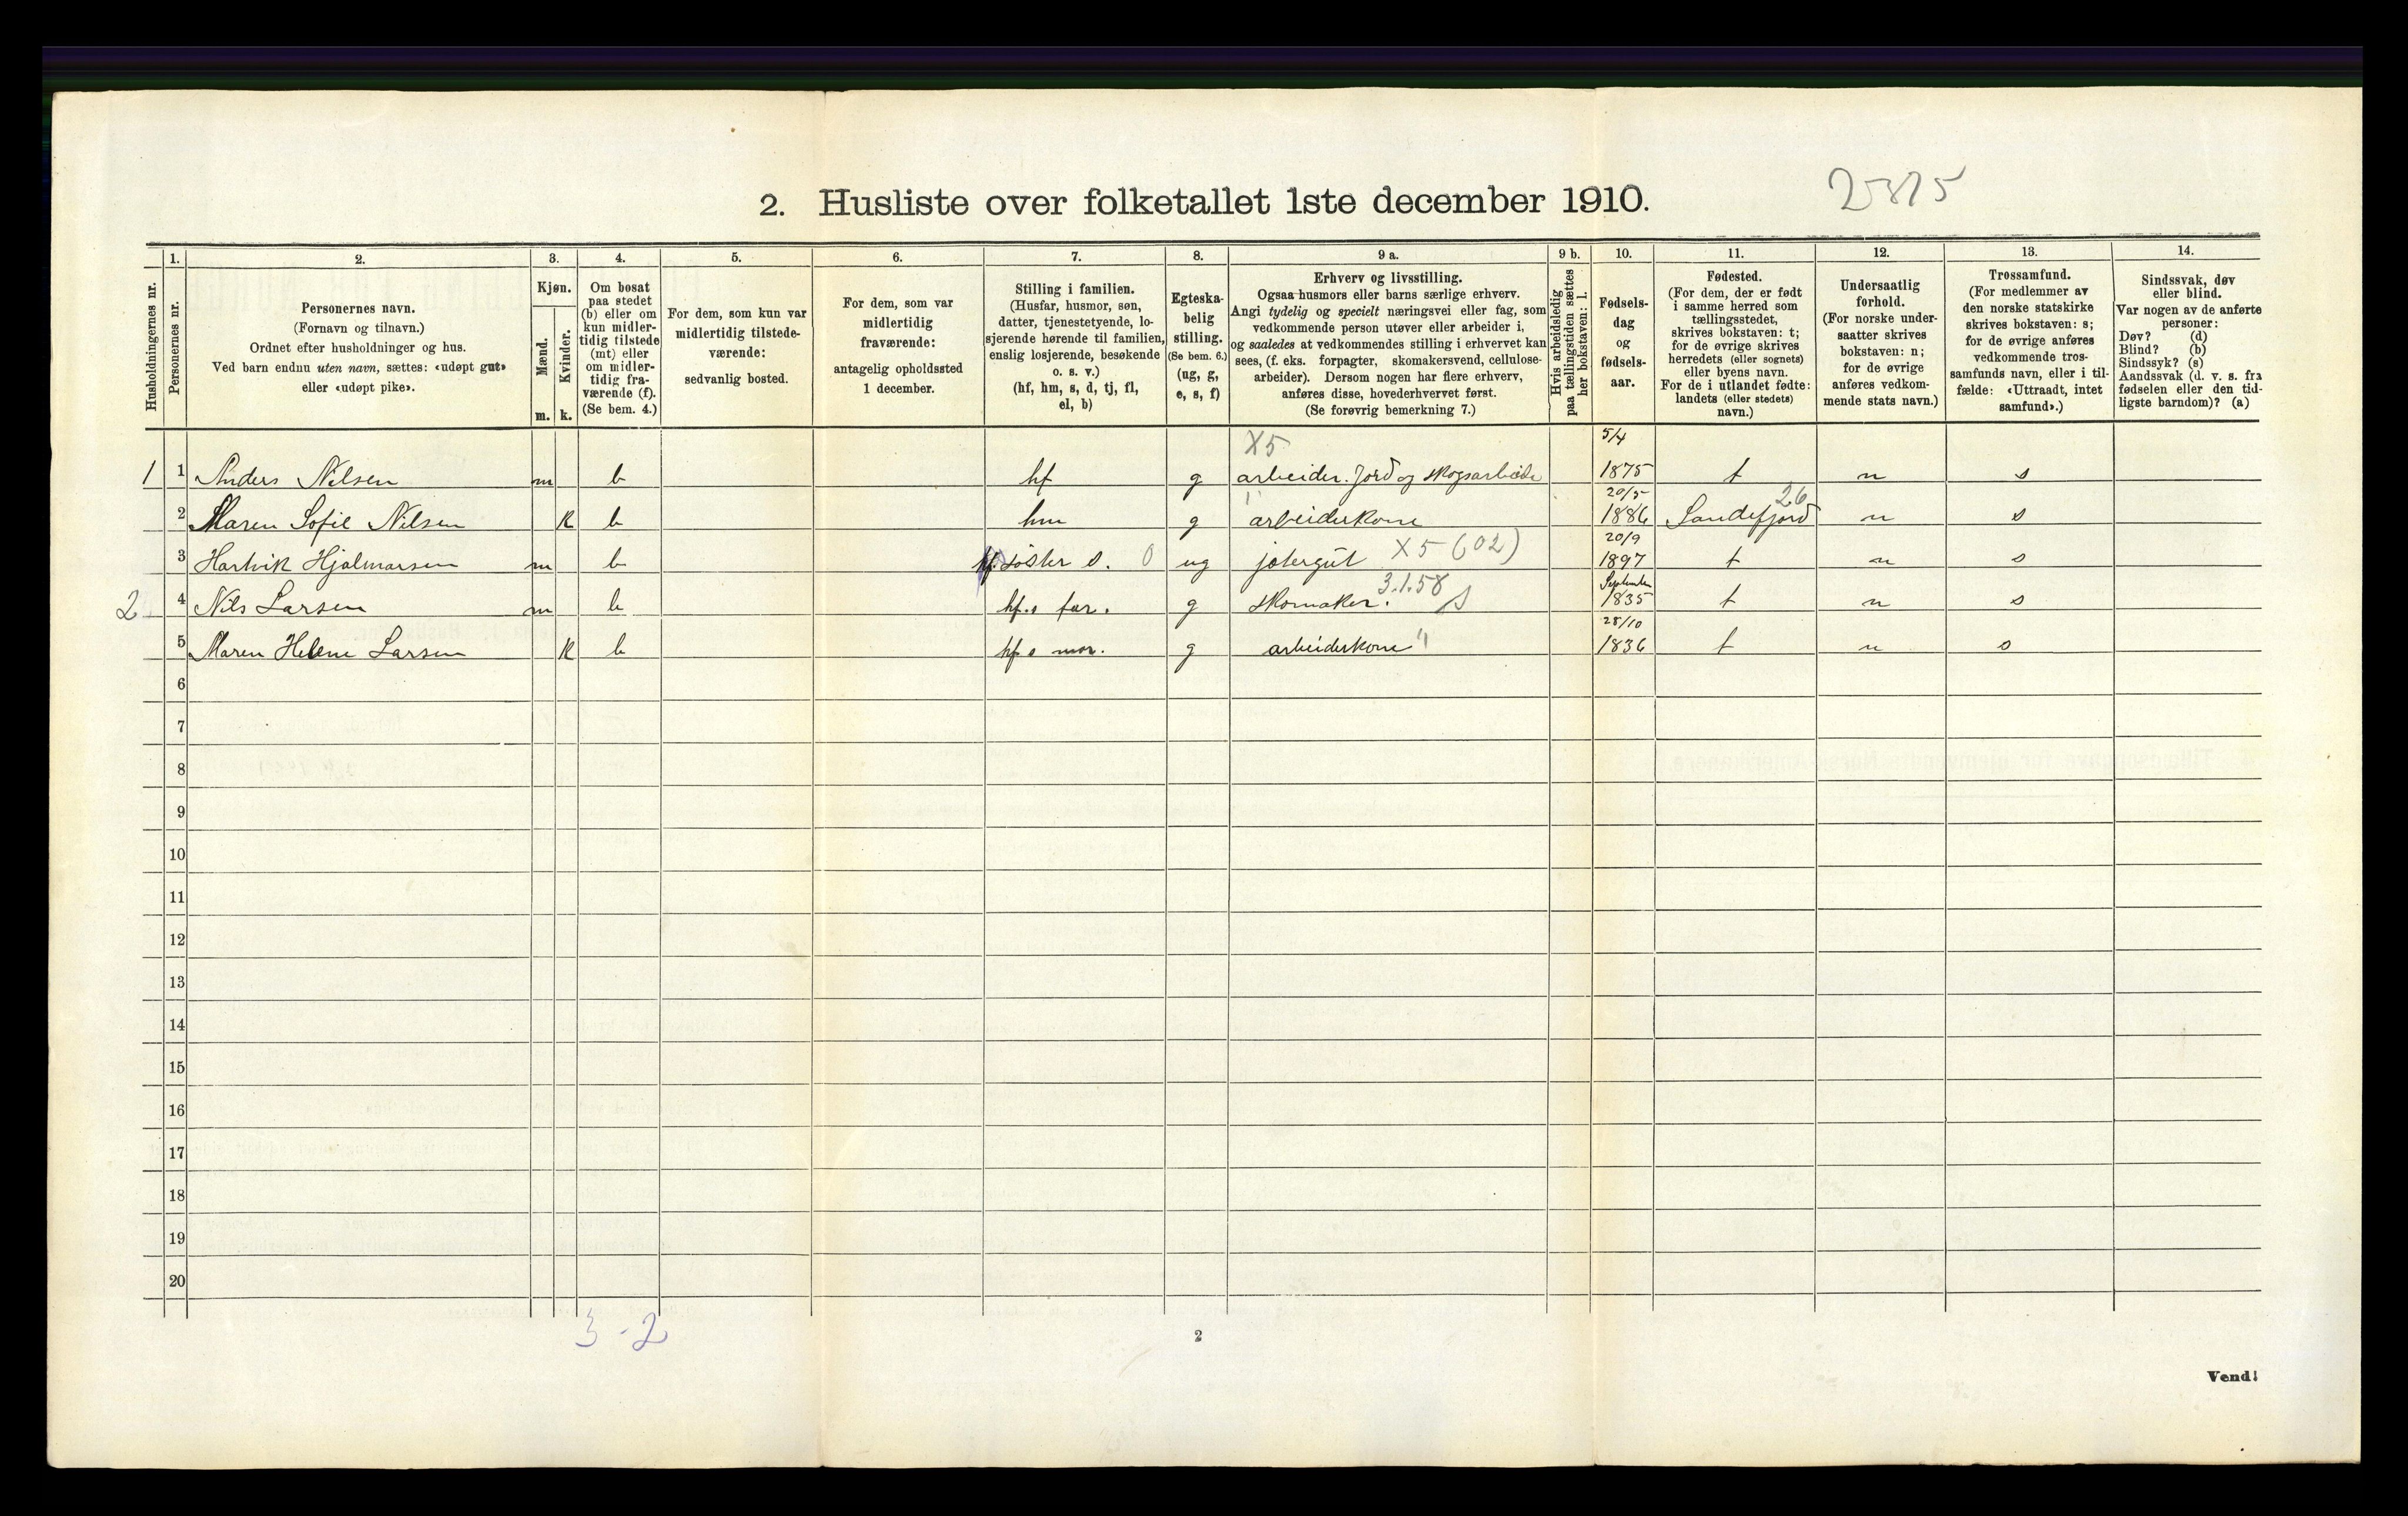 2. Husliste over folketallet 1ste december 1910.
Husholdningernes nr.
1.
Personernes nr.
2.
Personernes navn.
(Fornavn og tilnavn.)
Ordnet efter husholdninger og hus.
Ved barn endnu uten navn, sættes: «udøpt gut»
eller «udøpt pike».
3.
Kjøn.
Mænd.
Kvinder.
m. k.
4.
Om bosat
paa stedet
(b) eller om
kun midler-
tidig tilstede
(mt) eller
om midler-
tidig fra-
værende (f).
(Se bem. 4.)
5.
For dem, som kun var
midlertidig tilstede-
værende:
sedvanlig bosted.
6.
For dem, som var
midlertidig
fraværende:
antagelig opholdssted
1 december.
7.
Stilling i familien.
(Husfar, husmor, søn,
datter, tjenestetyende, lo-
sjerende hørende til familien,
enslig losjerende, besøkende
o. s. v.)
(hf, hm, s, d, tj, fl,
el, b)
8.
Egteska-
belig
stilling.
(Se bem. 6.)
(ug, g,
e, s, f)
9 a.
Erhverv og livsstilling.
Ogsaa husmors eller barns særlige erhverv.
Angi tydelig og specielt næringsvei eller fag, som
vedkommende person utøver eller arbeider i,
og saaledes at vedkommendes stilling i erhvervet kan
sees, (f. eks. forpagter, skomakersvend, cellulose-
arbeider). Dersom nogen har flere erhverv,
anføres disse, hovederhvervet først.
(Se forøvrig bemerkning 7.)
9 b.
Hvis arbeidsledig
paa tællingstiden sættes
her bokstaven: l.
10.
Fødsels-
dag
og
fødsels-
aar.
11.
Fødested.
(For dem, der er født
i samme herred som
tællingsstedet,
skrives bokstaven: t;
for de øvrige skrives
herredets (eller sognets)
eller byens navn.
For de i utlandet fødte:
landets (eller stedets)
navn.)
12.
Undersaatlig
forhold.
(For norske under-
saatter skrives
bokstaven: n;
for de øvrige
anføres vedkom-
mende stats navn.)
13.
Trossamfund.
(For medlemmer av
den norske statskirke
skrives bokstaven: s;
for de øvrige anføres
vedkommende tros-
samfunds navn, eller i til-
fælde: «Uttraadt, intet
samfund».)
14.
Sindssvak, døv
eller blind.
Var nogen av de anførte
personer:
Døv? (d)
Blind? (b)
Sindssyk? (s)
Aandssvak (d. v. s. fra
fødselen eller den tid-
ligste barndom)? (a)
X5 5/4
1 1 Anders Nilsen m b hf g arbeider. Jord og skogsarbeide 1875 t n s
20/5 26
2 Maren Sofie Nilsen k b hm g arbeiderkone 1886 Sandefjord n s
X5 (02) 20/9
3 Hartvik Hjalmarsen m b hf. søster s. 0 ug jetergut 1897 t n s
3.1.58 September
2 4 Nils Larsen m b hf.s far. g skomaker. s 1835 t n s
28/10
5 Maren Helene Larsen k b hf s mor. g arbeiderkone " 1836 t n s
6
7
8
9
10
11
12
13
14
15
16
17
18
19
20
3 - 2
2
Vend!